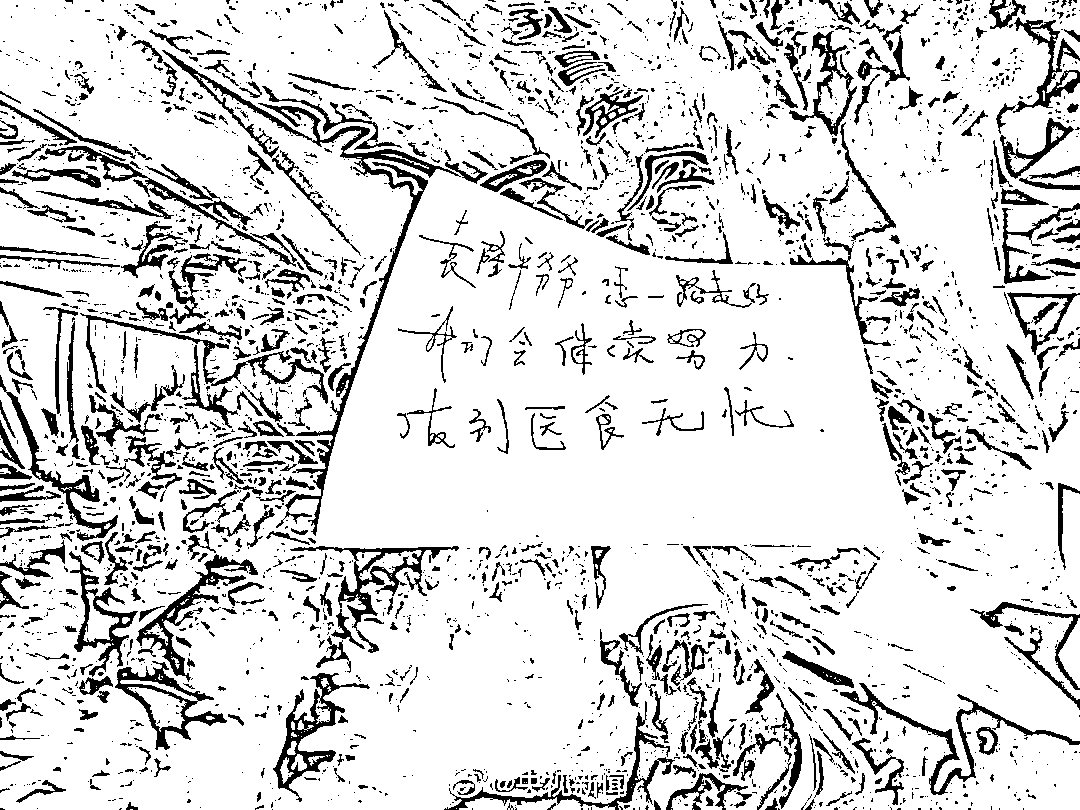 袁隆平爷爷.您一路走好.
我们会继续努力.
做到医食无忧.
@央视新闻